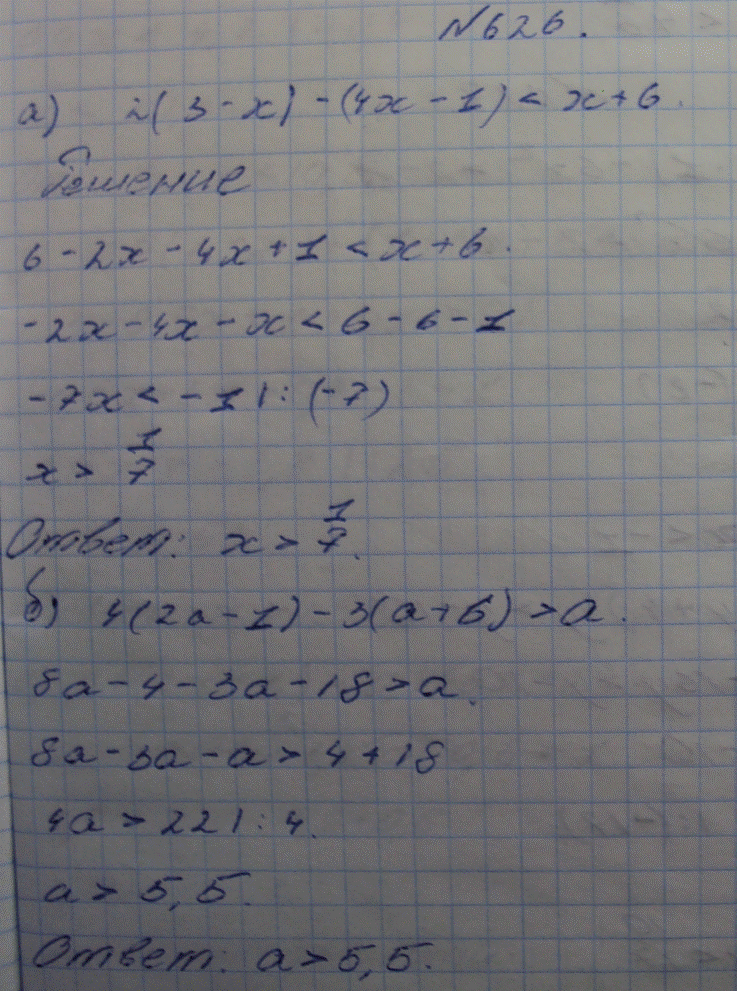 №626.
а) 2(3-x)-(4x-1)<x+6.
Решение
6-2x-4x+1<x+6.
-2x-4x-x<6-6-1
-7x<-1 |:(-7)
x>1/7
Ответ: x>1/7.
б) 4(2a-1)-3(a+6)>a.
8a-4-3a-18>a.
8a-3a-a>4+18
4a>22 |:4.
a>5,5.
Ответ: a>5,5.